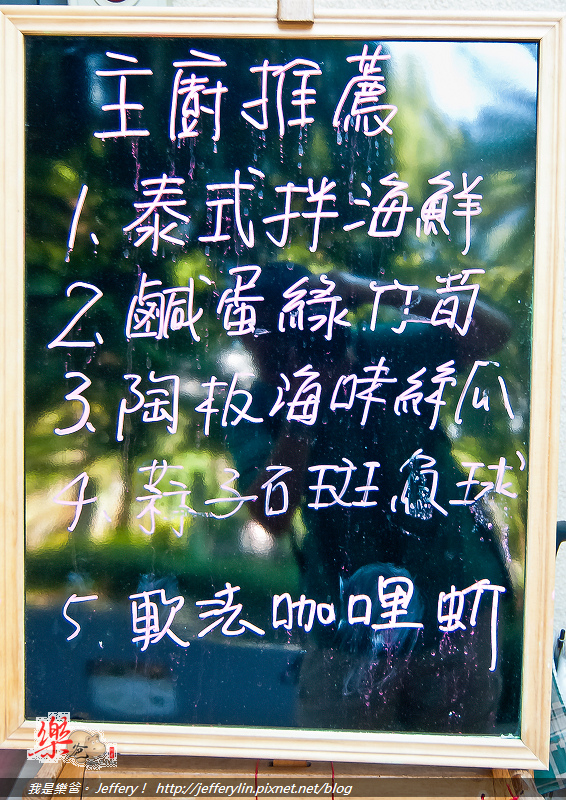 主廚推薦
1、泰式拌海鮮
2、鹹蛋綠竹荀
3、陶板海哖絲瓜
4、蒜子石斑魚球
5、軟法咖哩蚧
樂爸
我是樂爸。Jeffery！ http://jefferylin.pixnet.net/blog